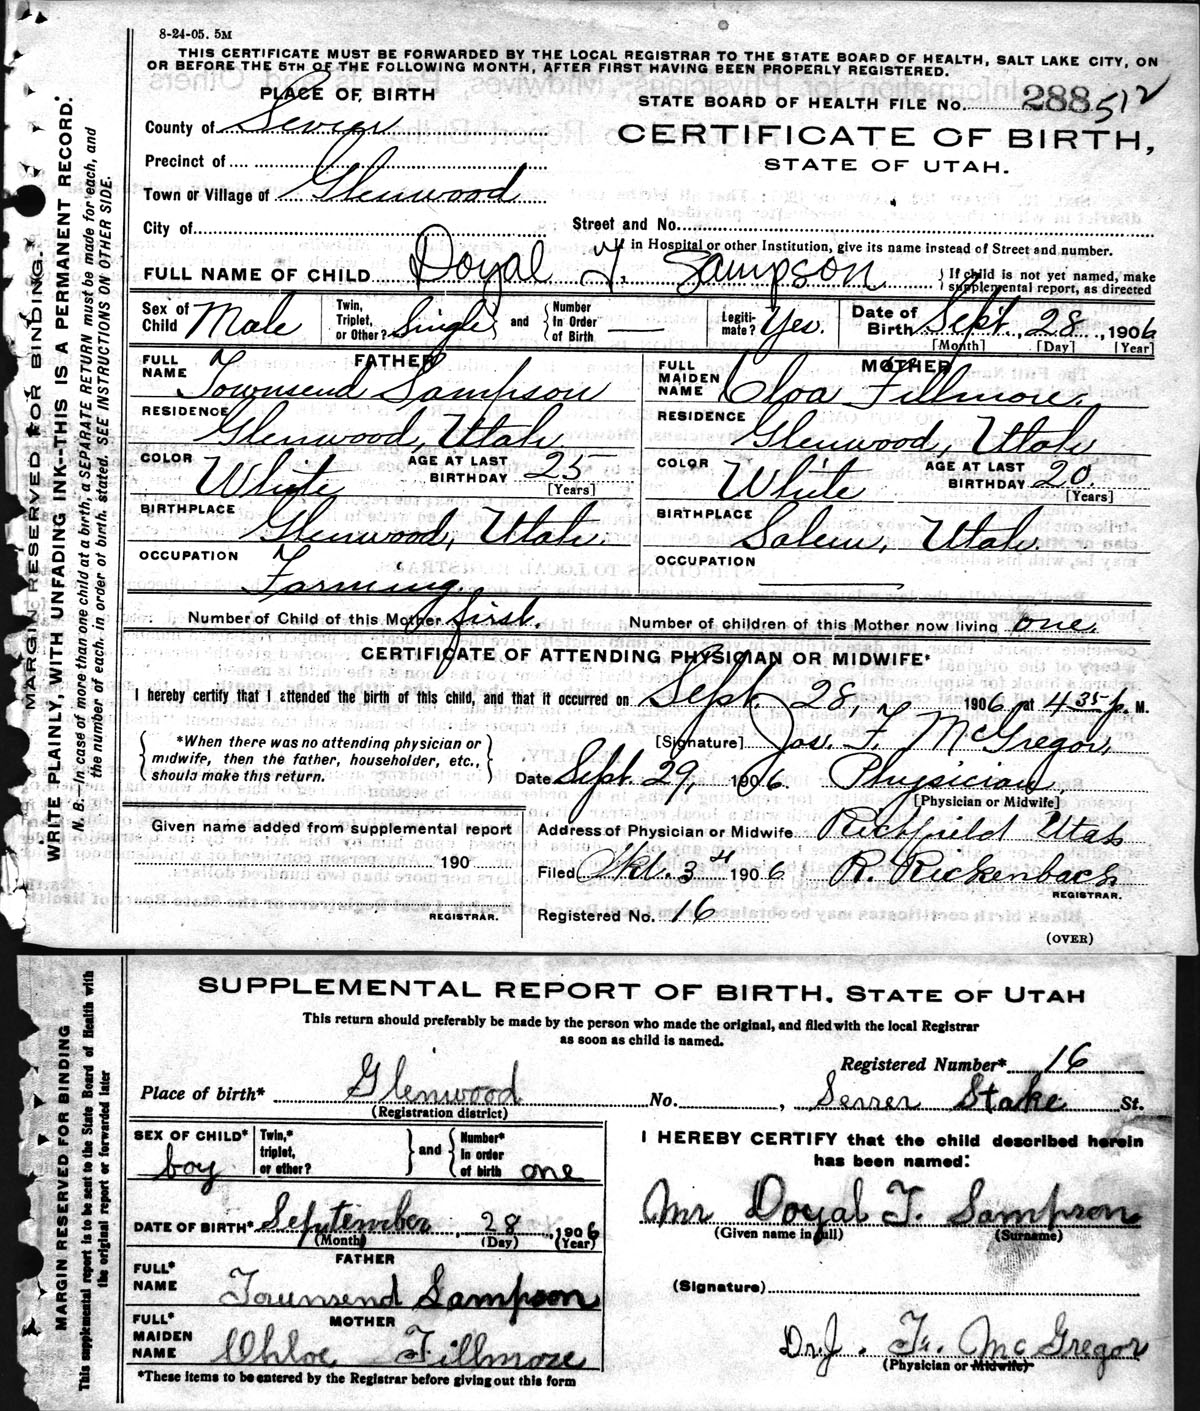 8-24-05. 5M
THIS CERTIFICATE MUST BE FORWARDED BY THE LOCAL REGISTRAR TO THE STATE BOARD OF HEALTH, SALT LAKE CITY, ON
OR BEFORE THE 5TH OF THE FOLLOWING MONTH, AFTER FIRST HAVING BEEN PROPERLY REGISTERED.
PLACE OF BIRTH
STATE BOARD OF HEALTH FILE No. 288 512
County of Sevier
CERTIFICATE OF BIRTH,
STATE OF UTAH.
Precinct of
Town or Village of Glenwood
City of Street and No.
If in Hospital or other Institution, give its name instead of Street and number.
FULL NAME OF CHILD Doyal F. Sampson { If child is not yet named, make supplemental report, as directed
Sex of Child Male Twin, Triplet, or Other? Single and { Number In Order of Birth — Legiti-mate? Yes. Date of Birth Sept. 28, 1906
[Month] [Day] [Year]
FATHER MOTHER
FULL NAME Townsend Sampson FULL MAIDEN NAME Cloa Fillmore.
RESIDENCE Glenwood, Utah RESIDENCE Glenwood, Utah
COLOR White AGE AT LAST BIRTHDAY 25 [Years] COLOR White AGE AT LAST BIRTHDAY 20. [Years]
BIRTHPLACE Glenwood, Utah. BIRTHPLACE Salem, Utah.
OCCUPATION Farming. OCCUPATION
Number of Child of this Mother first. Number of children of this Mother now living one.
CERTIFICATE OF ATTENDING PHYSICIAN OR MIDWIFE*
I hereby certify that I attended the birth of this child, and that it occurred on Sept. 28, 1906 at 4 35 p. M.
*When there was no attending physician or midwife, then the father, householder, etc., should make this return.
[Signature] Jos. F. McGregor,
Date Sept. 29, 1906. Physician
[Physician or Midwife]
Given name added from supplemental report
190
REGISTRAR.
Address of Physician or Midwife Richfield Utah
Filed Oct. 3 1906 R. Rickenbach
REGISTRAR.
Registered No. 16
(OVER)
MARGIN RESERVED FOR BINDING.
WRITE PLAINLY, WITH UNFADING INK--THIS IS A PERMANENT RECORD.
N. B.—In case of more than one child at a birth, a SEPARATE RETURN must be made for each, and
the number of each, in order of birth, stated. SEE INSTRUCTIONS ON OTHER SIDE.
SUPPLEMENTAL REPORT OF BIRTH, STATE OF UTAH
This return should preferably be made by the person who made the original, and filed with the local Registrar
as soon as child is named.
Registered Number* 16
Place of birth* Glenwood No. , Serrer Stake St.
(Registration district)
SEX OF CHILD* boy Twin,* triplet, or other? } and { Number* in order of birth one
DATE OF BIRTH* September 28, 1906
(Month) (Day) (Year)
FATHER
FULL* NAME Townsend Sampson
MOTHER
FULL* MAIDEN NAME Chloe Fillmore
*These items to be entered by the Registrar before giving out this form
I HEREBY CERTIFY that the child described herein
has been named:
Mr Doyal F. Sampson
(Given name in full) (Surname)
(Signature)
Dr. J. F. McGregor
(Physician or Midwife)
MARGIN RESERVED FOR BINDING
This supplemental report is to be sent to the State Board of Health with
the original report or forwarded later